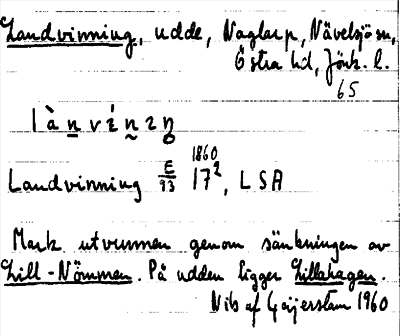 Landvinning, udde, Naglarp, Nävelsjö sn,
Östra hd, Jönk. l.
65
l à n v í n ɩ n̥
1860
Landvinning E/93 17², LSA
Mark utvunnen genom sänkningen av
Lill-Nömmen. På udden ligger Lillahagen.
Nils af Geijerstam 1960